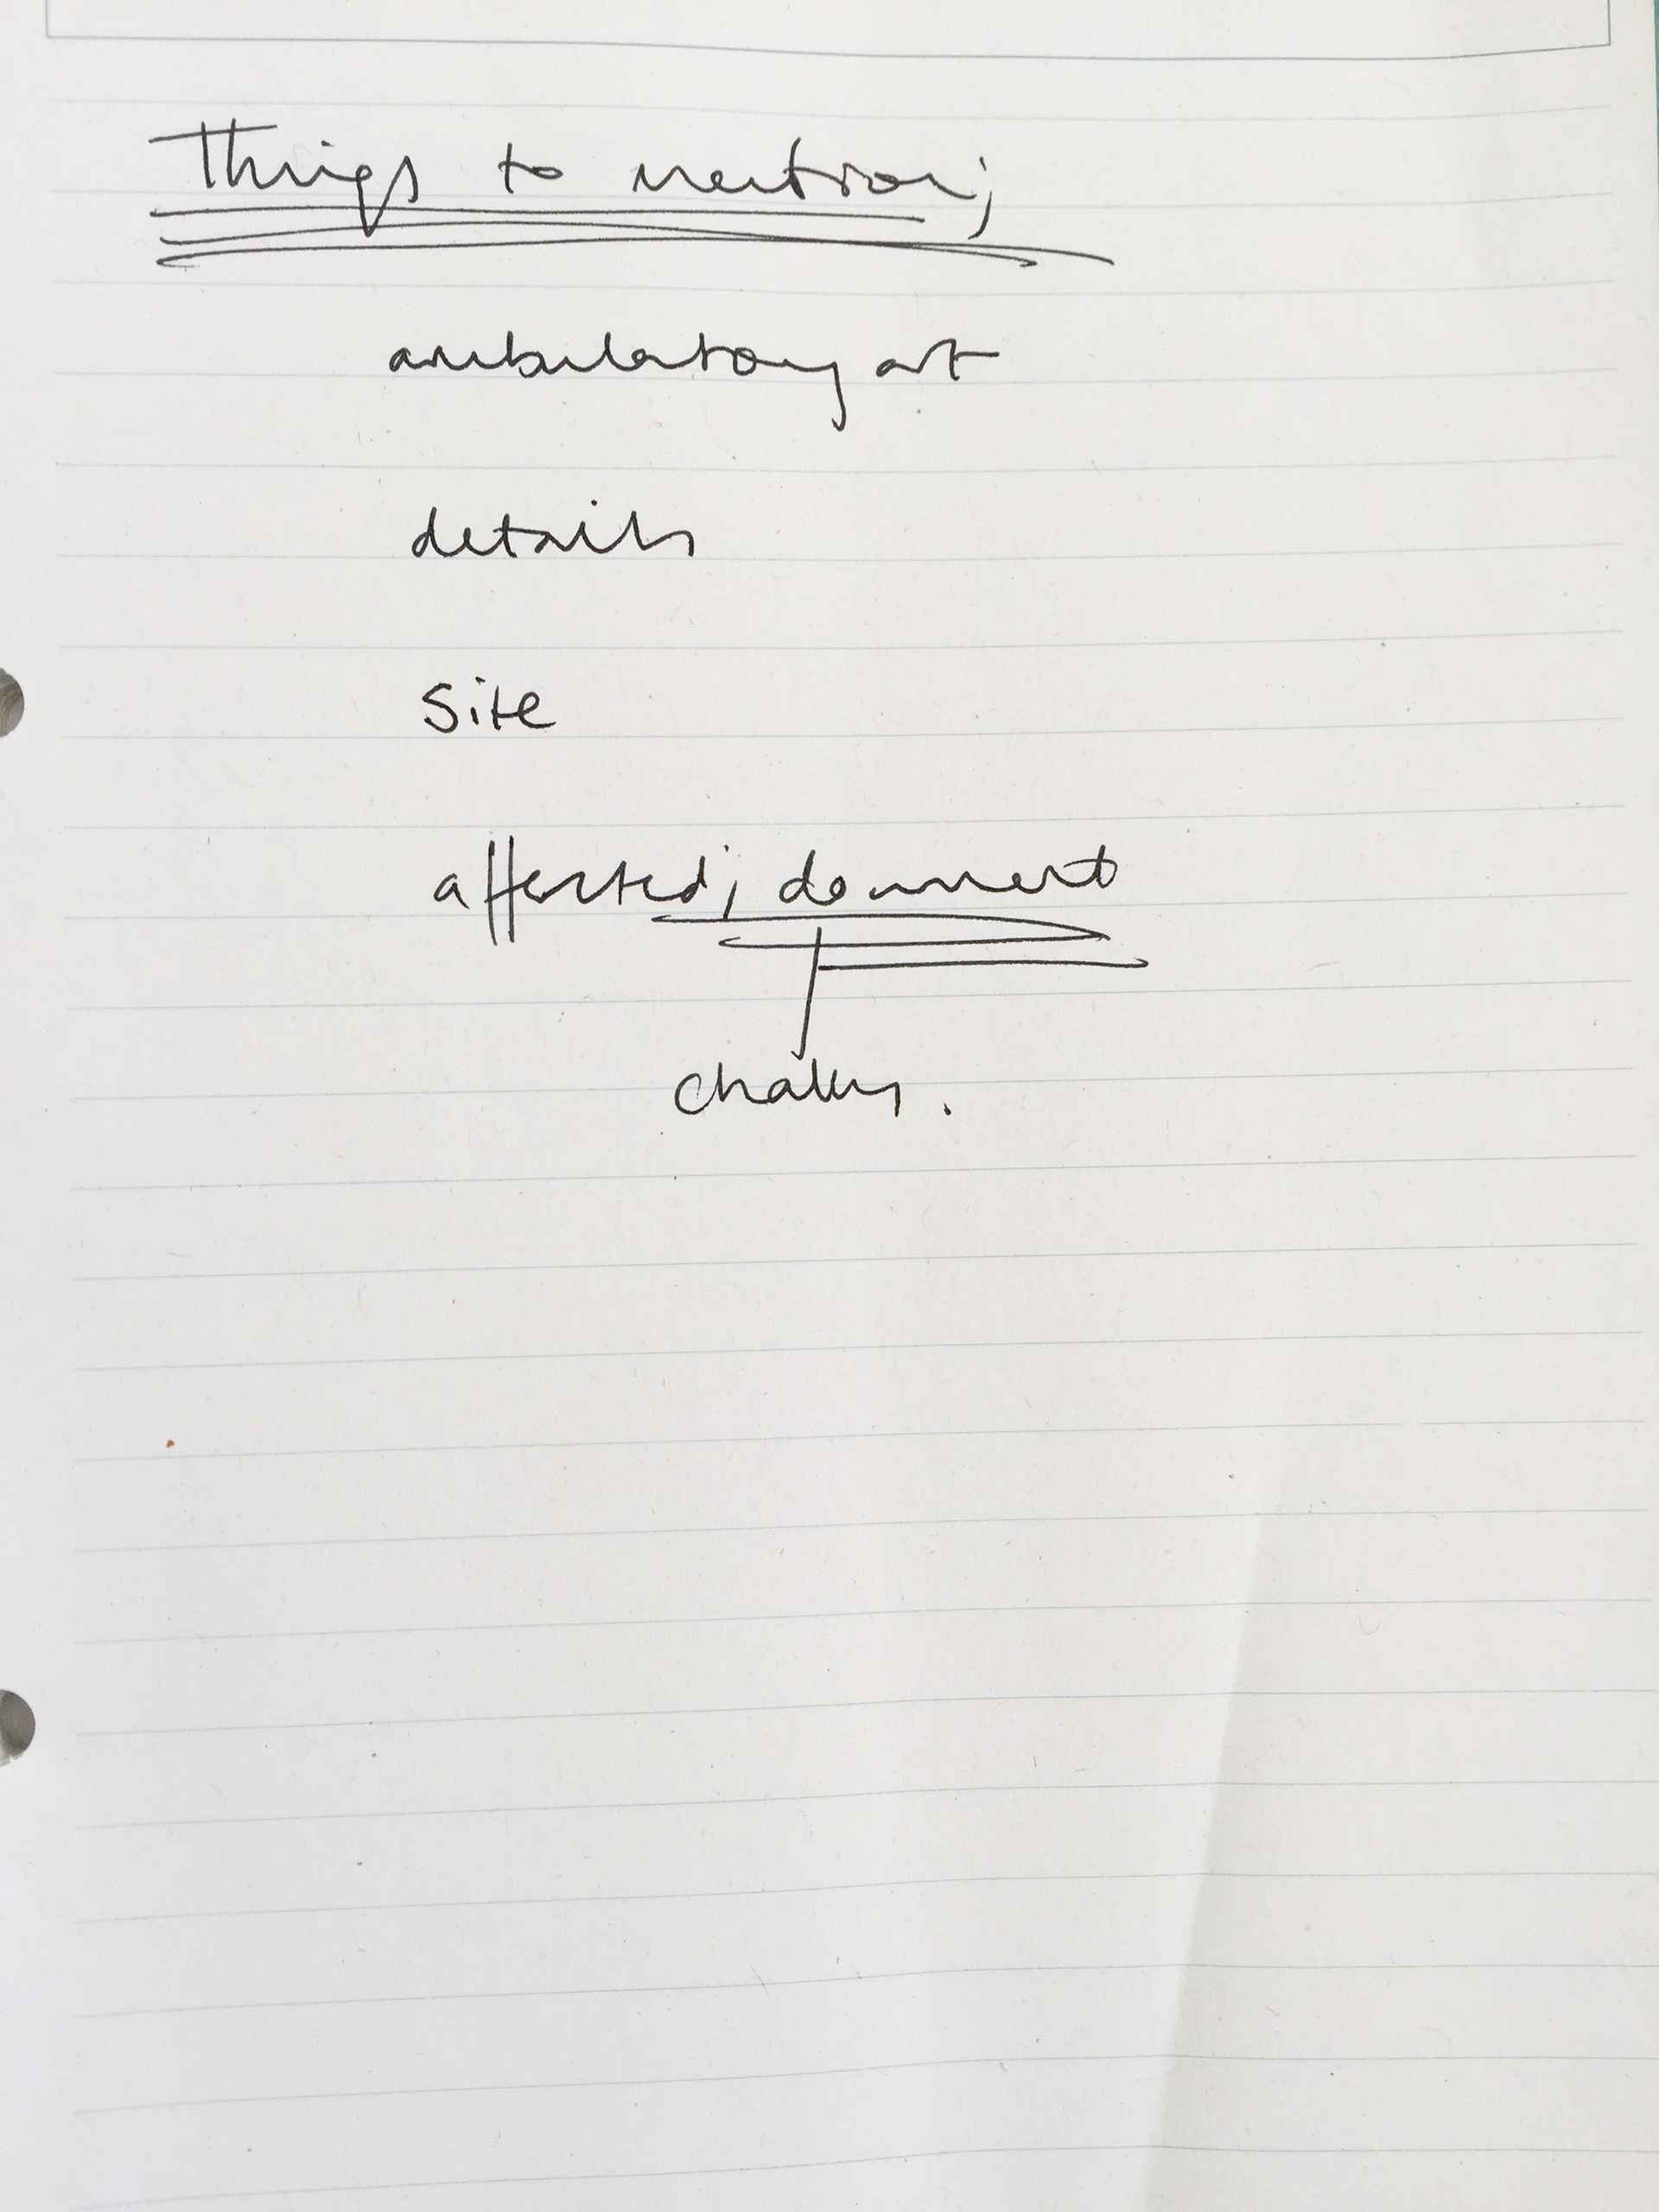 Things to mention;
ambulatory art
details
Site
affected; dormant